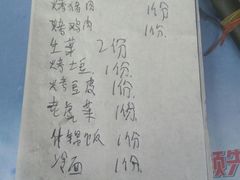 烤猪肉 1份
烤鸡肉 1份
生菜 2份
烤土豆 1份
烤豆皮 1份
老虎菜 1份
什锦饭 1份
冷面 1份